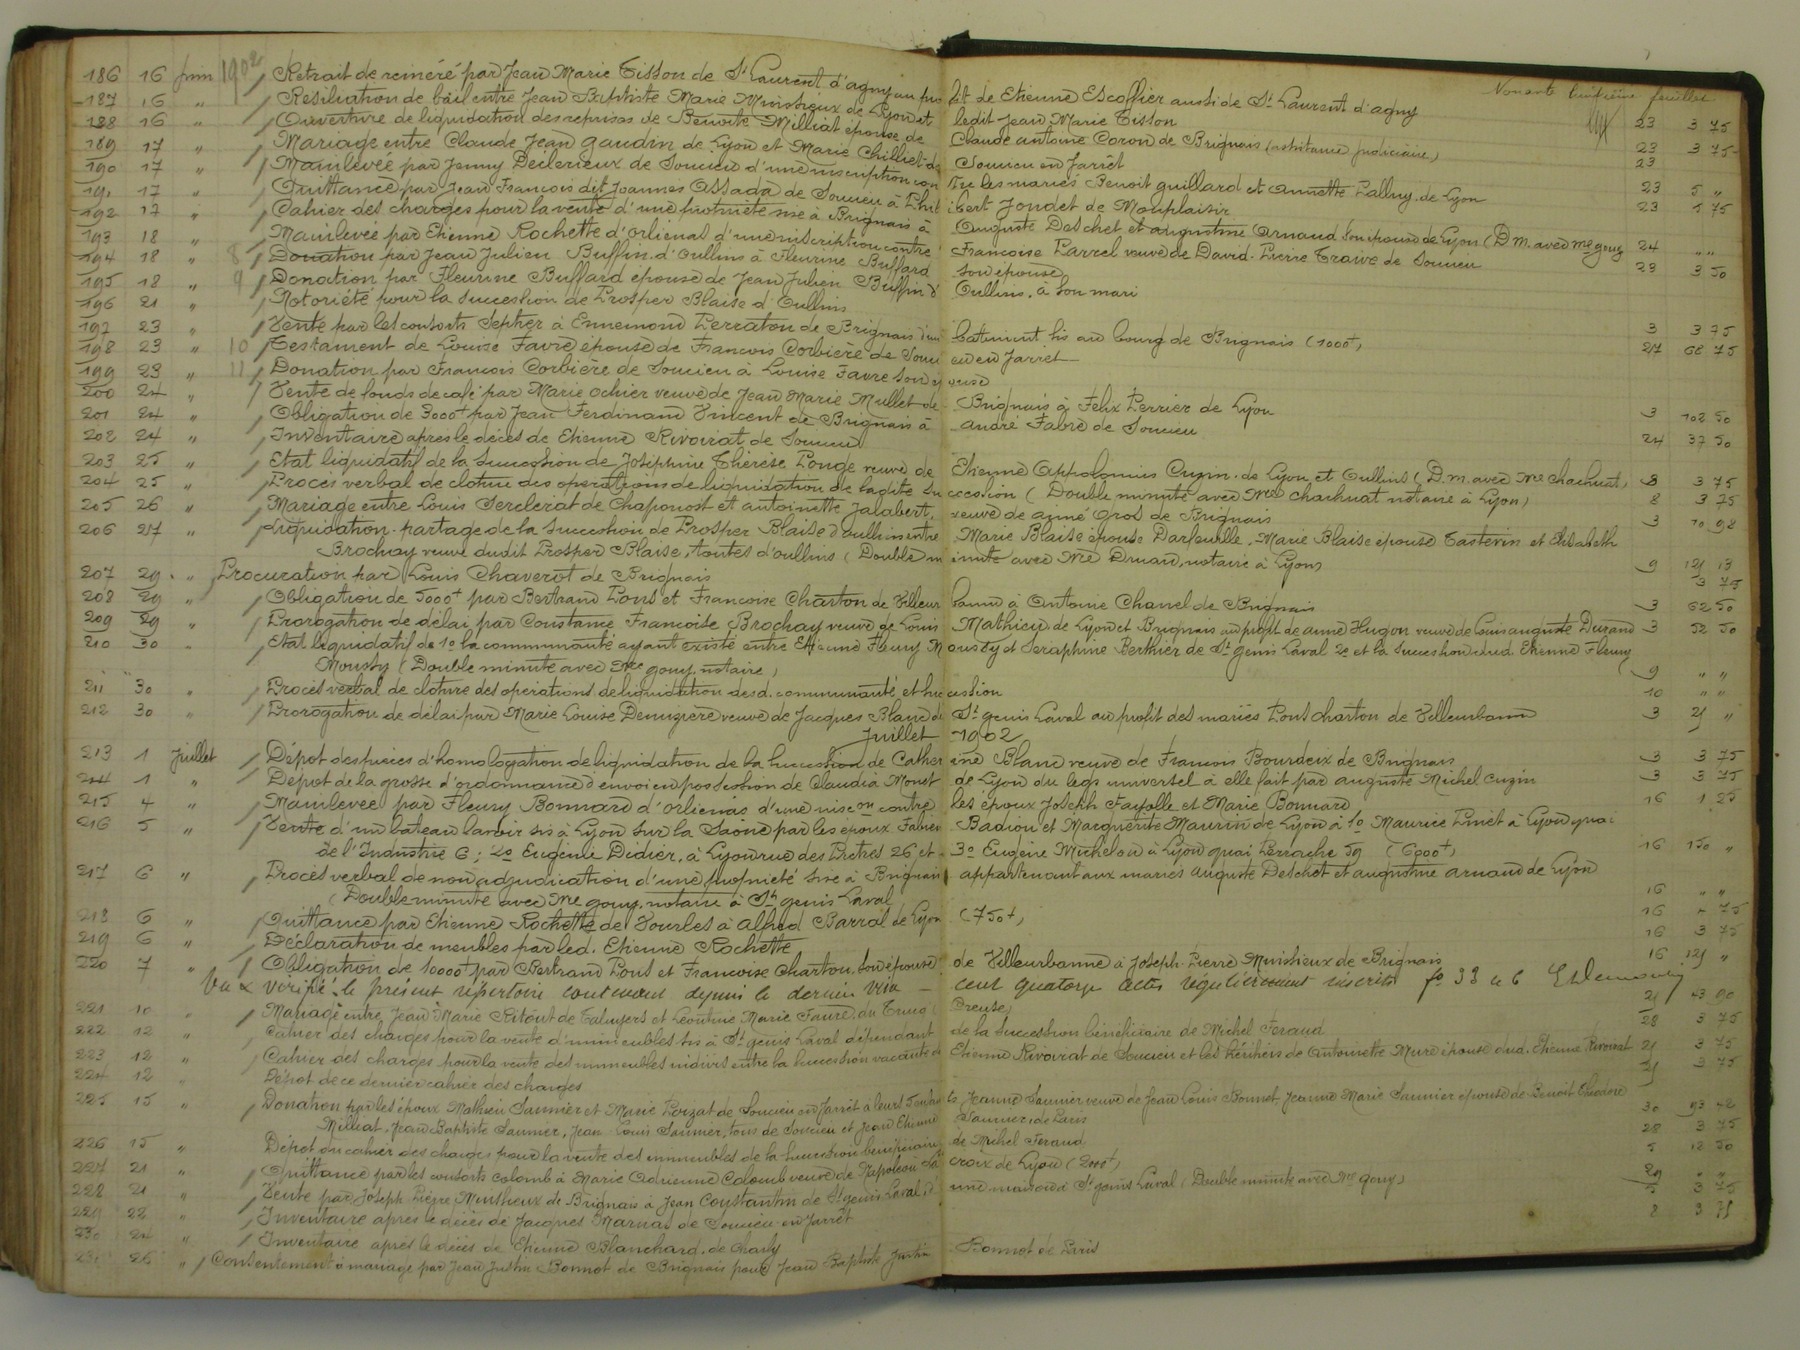 Nonante huitième feuillet
186 16 Juin 1902 Retrait de réméré par Jean Marie Tisson de St Laurent d'agny au profit de Etienne Escoffier aussi de St Laurent d'agny 23 3 75
187 16 " Résiliation de bail entre Jean Baptiste Marie Minssieux de Lyon et ledit Jean Marie Tisson 23 3 75
188 16 " Ouverture de liquidation des reprises de Benoite Milliat épouse de Claude antoine Coron de Brignais (assistance judiciaire) 23
189 17 " Mariage entre Claude Jean Gaudin de Lyon et Marie Chilliet de Soucieu en Jarrêt
190 17 " Mainlevée par Jenny Declerieux de Soucieu d'une inscription contre les mariés Benoit guillard et annette Palluy de Lyon 23 5 "
191 17 " Quittance par Jean François dit Joannes Assada de Soucieu à Philibert Jondet de Monplaisir 23 5 75
192 17 " Cahier des charges pour la vente d'une propriété sise à Brignais à Auguste Deschet et augustine Arnaud son épouse de Lyon (D.m. avec Me gouy 24 " "
193 18 " Mainlevée par Etienne Rochette d'orlienas d'une inscription contre Françoise Parcel veuve de David-Pierre Traive de Soucieu 23 3 50
194 18 " 8 Donation par Jean Julien Buffin d'oullins à Fleurine Buffard son épouse
195 18 " 9 Donation par Fleurine Buffard épouse de Jean Julien Buffin d'Oullins, à son mari
196 21 " Notoriété pour la succession de Prosper Blaise d'Oullins 3 3 75
197 23 " Vente par les consorts Sepher à Ennemond Perraton de Brignais d'un batiment sis au bourg de Brignais (1000f) 27 68 75
198 23 " 10 Testament de Louise Favre épouse de François Corbière de Soucieu en Jarret
199 23 " 11 Donation par François Corbière de Soucieu à Louise Favre son épouse
200 24 " Vente de fonds de café par Marie Ochier veuve de Jean Marie Mullet de Brignais à Félix Perrier de Lyon 3 102 50
201 24 " Obligation de 3000f par Jean Ferdinand Vincent de Brignais à andré Fabre de Soucieu 24 37 50
202 24 " Inventaire après le décès de Etienne Rivoirat de Soucieu
203 25 " Etat liquidatif de la succession de Joséphine Thérèse Ponge veuve de Etienne Appolonius Cuzin de Lyon et Oullins (D.m. avec Me Chachuat) 8 3 75
204 25 " Procès verbal de cloture des opérations de liquidation de ladite succession (Double minute avec Me Chachuat notaire à Lyon) 8 3 75
205 26 " Mariage entre Louis Serclerat de Chaponost et antoinette Jalabert, veuve de aimé Gros de Brignais 3 10 98
206 27 " Liquidation-partage de la succession de Prosper Blaise d'oullins entre Marie Blaise épouse Darfeuille, Marie Blaise épouse Tasterin et Elisabeth
Brochay veuve dudit Prosper Blaise, toutes d'oullins (Double minute avec Me Druard, notaire à Lyon) 9 121 13
207 29 " Procuration par Louis Chaverot de Brignais 3 75
208 29 " Obligation de 5000f par Bertrand Pons et Françoise Charton de Villeurbanne à Antoine Chanel de Brignais 3 62 50
209 29 " Prorogation de délai par Constance Françoise Brochay veuve de Louis Mathieu de Lyon et Brignais au profit de anne Hugon veuve de Louis auguste Durand 3 52 50
210 30 " Etat liquidatif de 1o la communauté ayant existé entre Etienne Fleury Moussy et Seraphine Berthier de St genis Laval 2o et la succession dud. Etienne Fleury
Moussy (Double minute avec Me gouy, notaire) 9 " "
211 30 " Procès verbal de cloture des opérations de liquidation desd. communauté et succession 10 " "
212 30 " Prorogation de délai par Marie Louise Demizière veuve de Jacques Blanc de St genis Laval au profit des mariés Pons Charton de Villeurbanne 3 21 "
Juillet 1902
213 1 Juillet Dépot des pièces d'homologation de liquidation de la succession de Catherine Blanc veuve de François Bourdeix de Brignais 3 3 75
214 1 " Dépot de la grosse d'ordonnance d'envoi en possession de Claudia Monet de Lyon du legs universel à elle fait par auguste Michel Cuzin 3 3 75
215 4 " Mainlevée par Fleury Bonnard d'orlienas d'une inscon contre les époux Joseph Fayolle et Marie Bonnard 16 1 25
216 5 " Vente d'un bateau lavoir sis à Lyon sur la Saône par les époux Fabien Badiou et Marguerite Maurin de Lyon à 1o Maurice Pinet à Lyon quai
de l'Industrie 6; 2o Eugénie Didier, à Lyon rue des Prêtres 26 et 3o Eugène Michelon à Lyon quai Perrache 59 (6000f) 16 150 "
217 6 " Procès verbal de non adjudication d'une propriété sise à Brignais appartenant aux mariés auguste Deschet et augustine arnaud de Lyon
(Double minute avec Me gouy, notaire à St genis Laval 16 " "
218 6 " Quittance par Etienne Rochette de Vourles à Alfred Barral de Lyon (750f) 16 75
219 6 " Déclaration de meubles par led. Etienne Rochette 16 3 75
220 7 " Obligation de 10000f par Bertrand Pons et Françoise Charton, son épouse de Villeurbanne à Joseph Pierre Minssieux de Brignais 16 125 "
Vu & vérifié le présent répertoire contenant depuis le dernier visa — cent quatorze actes régulièrement inscrits fo 33 c 6
221 10 " Mariage entre Jean Marie Ritout de Taluyers et Léontine Marie Faure, du Creuse) 21 43 90
222 12 " Cahier des charges pour la vente d'immeubles sis à St genis Laval dépendant de la succession bénéficiaire de Michel Feraud 28 3 75
223 12 " Cahier des charges pour la vente des immeubles indivis entre la succession vacante de Etienne Rivoirat de Soucieu et les héritiers de Antoinette Mure épouse dud. Etienne Rivoirat 21 3 75
224 12 " Dépot de ce dernier cahier des charges 21 3 75
225 15 " Donation par les époux Mathieu Saunier et Marie Poizat de Soucieu en Jarrêt à leurs enfants, Jeanne Saunier veuve de Jean Louis Bonnet, Jeanne Marie Saunier épouse de Benoit Théodore
Milliat, Jean Baptiste Saunier, Jean Louis Saunier, tous de Soucieu et Jean Etienne Saunier, de Paris 30 93 42
226 15 " Dépot du cahier des charges pour la vente des immeubles de la succession bénéficiaire de Michel Feraud 28 3 75
227 21 " Quittance par les consorts colomb à Marie Adrienne Colomb veuve de Napoléon Lacroix de Lyon (2000f) 5 12 50
228 21 " Vente par Joseph Pierre Minssieux de Brignais à Jean Constantin de St genis Laval d'une maison à St genis Laval (Double minute avec Me gouy) 29 " "
229 22 " Inventaire après le décès de Jacques Marnas de Soucieu en Jarrêt 5 3 75
230 24 " Inventaire après le décès de Etienne Blanchard, de Charly 8 3 75
231 26 " Consentement à mariage par Jean Justin Bonnot de Brignais pour Jean Baptiste Justin Bonnot de Paris